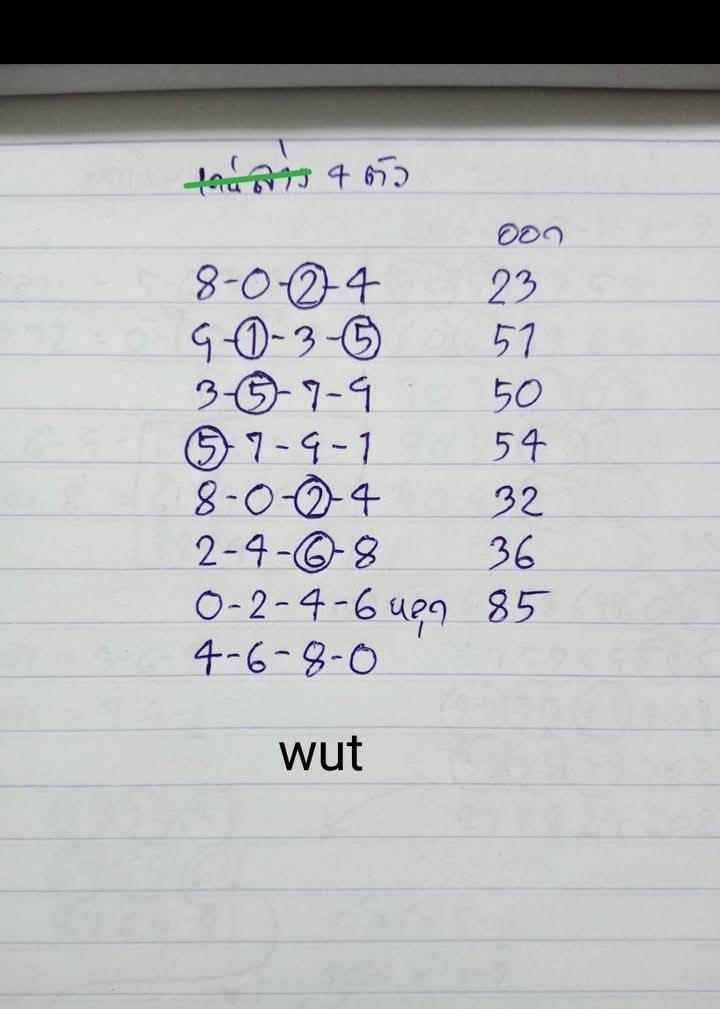 เด่นล่าง 4 ตัว
ออก
8-0-2-4 23
9-1-3-5 51
3-5-7-9 50
5-7-9-1 54
8-0-2-4 32
2-4-6-8 36
0-2-4-6 หลุด 85
4-6-8-0
wut